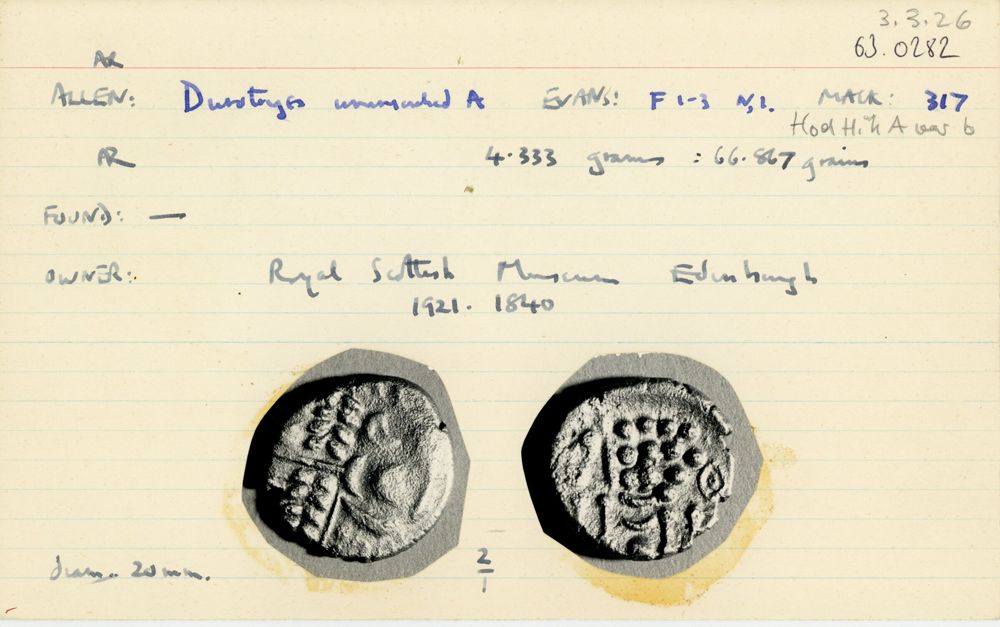 3.3.26
63.0282
AR
ALLEN: Durotriges uninscribed A EVANS: F 1-3 N, 1. MACK: 317
Hod Hill A var b
AR 4.333 grams = 66.867 grains
FOUND: —
OWNER: Royal Scottish Museum Edinburgh
1921. 1840
diam. 20 mm.
2
1